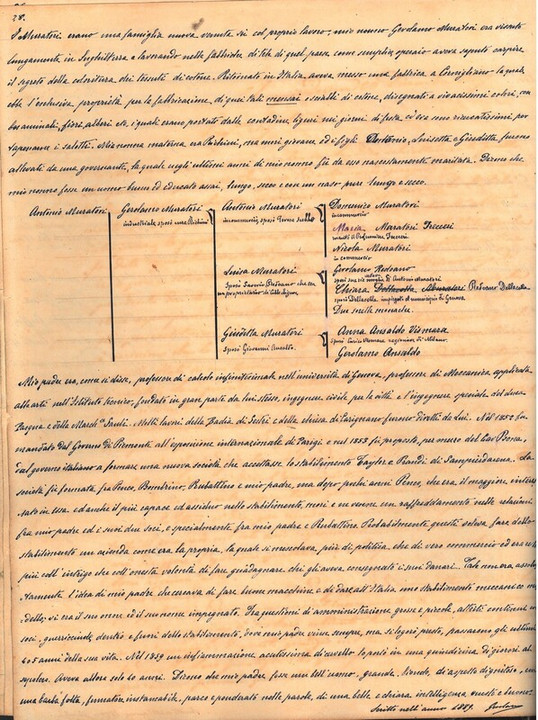 28.
I Muratori erano una famiglia nuova venuta su col proprio lavoro - mio nonno Gerolamo Muratori era vissuto
lungamente in Inghilterra e lavorando nelle fabbriche di tele di quel paese come semplice operaio aveva saputo carpire
il segreto della coloritura dei tessuti di cotone. Ritornato in Italia, aveva messo una fabbrica a Cornigliano - la quale
ebbe l'esclusiva proprietà per la fabbricazione, di quei tali mezzari o scialli di cotone, disegnati a vivacissimi colori, con
animali, fiori, alberi etc, i quali erano portati dalle contadine liguri nei giorni di festa ed ora sono ricercatissimi per
tapezzare i salotti. Mia nonna materna era Perbini, ma morì giovane ed i figli Antonio, Luisetta e Giuditta furono
allevati da una governante, la quale negli ultimi anni di mio nonno fu da esso nascostamente sposata. Dicono che
mio nonno fosse un uomo buono ed educato assai, lungo, secco e con un naso pure lungo e secco.
Antonio Muratori
Gerolamo Muratori
industriale, sposò una
Antonio Muratori
sposò
Domenico Muratori
in commercio
Maria Muratori Treccni
Nicola Muratori
in commercio
Luisa Muratori
sposò
Gerolamo Podestano
Chiara
Due sorelle monache
Giuditta Muratori
sposò Giovanni Ansaldo
Anna Ansaldo Vismara
sposò Vismara ragioniere di Milano
Gerolamo Ansaldo
Mio padre era, come si disse, professore di calcolo infinitesimale nell'università di Genova, professore di Meccanica applicata
alle arti nell'Istituto tecnico, fondato in gran parte da lui stesso, ingegnere civile per le ville e l'ingegnere speciale del duca
Pasqua e della March.a Sauli. Molti lavori della Badia di Sestri e della chiesa di Carignano furono diretti da lui. Nel 1850 fu
mandato dal Governo di Piemonte all'esposizione internazionale di Parigi e nel 1853 fu proposto, per mezzo del Cav Bona,
dal governo italiano a formare una nuova società che accettasse lo stabilimento Taylor e Prandi di Sampierdarena. La
società fu formata fra Penco, Bombrino, Rubattino e mio padre, ma dopo pochi anni Penco, che era il maggiore, interes
sato in essa ed anche il più capace ed assiduo nello stabilimento, morì e ne venne un raffreddamento nelle relazioni
fra mio padre ed i suoi due soci, e specialmente fra mio padre e Rubattino. Probabilmente questi voleva fare dello
stabilimento un azienda come era la propria, la quale si mescolava, più di politica, che di vero commercio ed era retta
più coll'intrigo che coll'onesta volontà di fare guadagnare chi gli aveva consegnati i suoi danari. Tale non era assolu
tamente l'idea di mio padre che cercava di fare buone macchine e di dare all'Italia, uno stabilimento meccanico mo
dello; vi era il suo onore ed il suo nome impegnato. Fra questioni di amministrazione grosse e piccole, alterchi continui coi
soci, guerricciuole dentro e fuori dello stabilimento, dove mio padre visse sempre, ma si logorò presto, passarono gli ultimi
4 o 5 anni della sua vita. Nel 1859 un infiammazione acutissima di cervello lo portò in una quindicina di giorni al
sepolcro. Aveva allora solo 40 anni. Dicono che mio padre fosse un bell'uomo - grande, biondo, di aspetto dignitoso, con
una barba folta, fumatore instancabile, parco e ponderato nelle parole, di una bella e chiara intelligenza, onesto e buono.
Scritto nell'anno 1889.